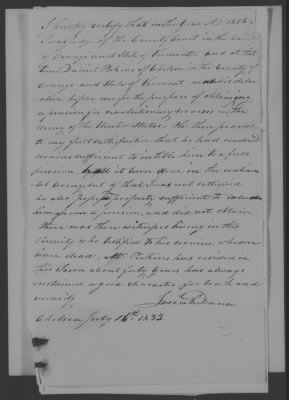 I hereby certify that in the Year A.D. 1818 I
was Judge of the County Court in the County
of Orange and State of Vermont and at that
time Daniel Perkins of Chelsea in the County of
Orange and State of Vermont made his declar
ation before me for the purpose of obtaining
a pension for revolutionary services in the
Army of the United States. He then proved
to my full satisfaction that he had rendered
services sufficient to intitle him to a full
pension had it been done in the
but of that I was not satisfied
he also property sufficient to
him from a pension, and did not obtain
there was then witnesses living in this
vicinity who testified to his services whom
since dead. Mr. Perkins has resided in
this Town about forty Years has always
sustained a good character for truth and
veracity
Josiah Dana
Chelsea July 16th 1833